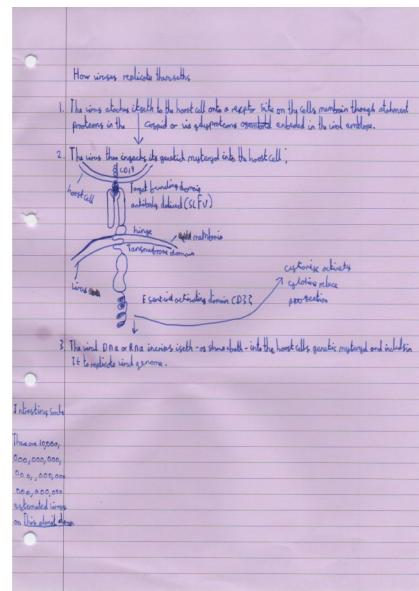 How viruses replicate themselfs
1. The virus ataches itself to the hoast cell onto a receptor site on the cells membrain through atachment
proteins in the capsid or via glycoproteins embeded in the viral envelope.
2. The virus then ingects its genetick mateyrial into the hoast cell;
CD19
hoast cell
Target bunding domain
antibody derived (SCFV)
hinge
membrain
Transmembrane domain
virus
Esential activating domain CD3ζ
cytotoxic activity
cytokine release
3. The viral DNA or RNA
into the hoast cells genetic mateyrial and
It to replicate viral genome.
Intresting
There are 10,000,
000,000,000,
000,000,000
000,000,000
estamated
on This